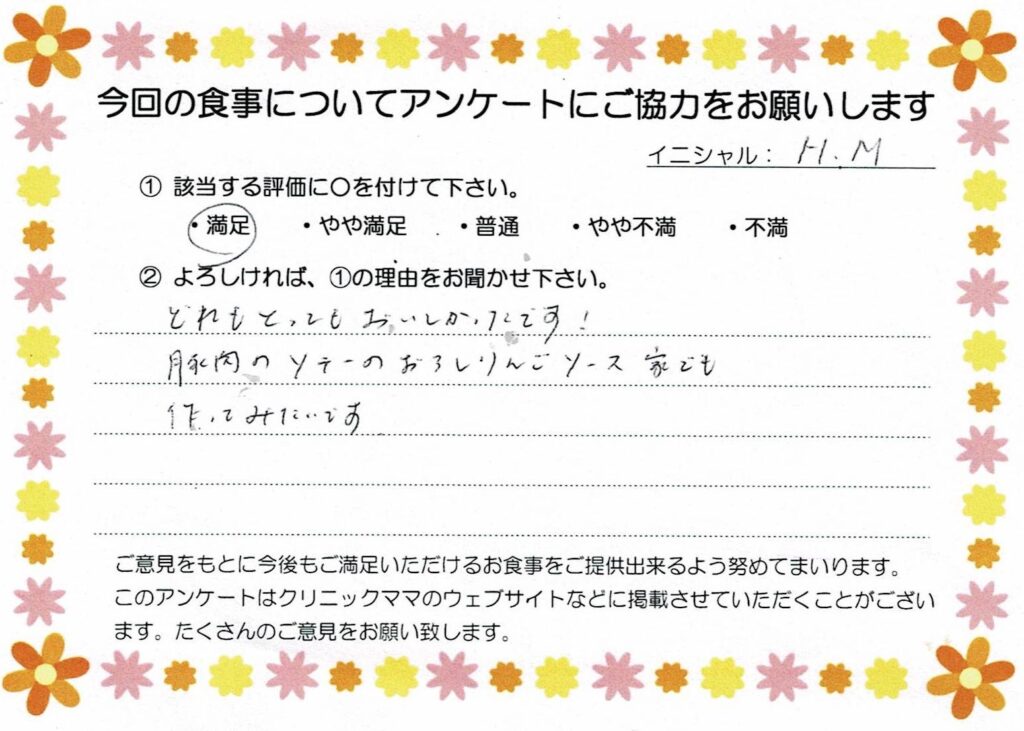 今回の食事についてアンケートにご協力をお願いします
イニシャル： H.M
① 該当する評価に○を付けて下さい。
・満足 ・やや満足 ・普通 ・やや不満 ・不満
② よろしければ、①の理由をお聞かせ下さい。
どれもとってもおいしかったです！
豚肉のソテーのおろしりんごソース 家でも
作ってみたいです
ご意見をもとに今後もご満足いただけるお食事をご提供出来るよう努めてまいります。
このアンケートはクリニックママのウェブサイトなどに掲載させていただくことがござい
ます。たくさんのご意見をお願い致します。